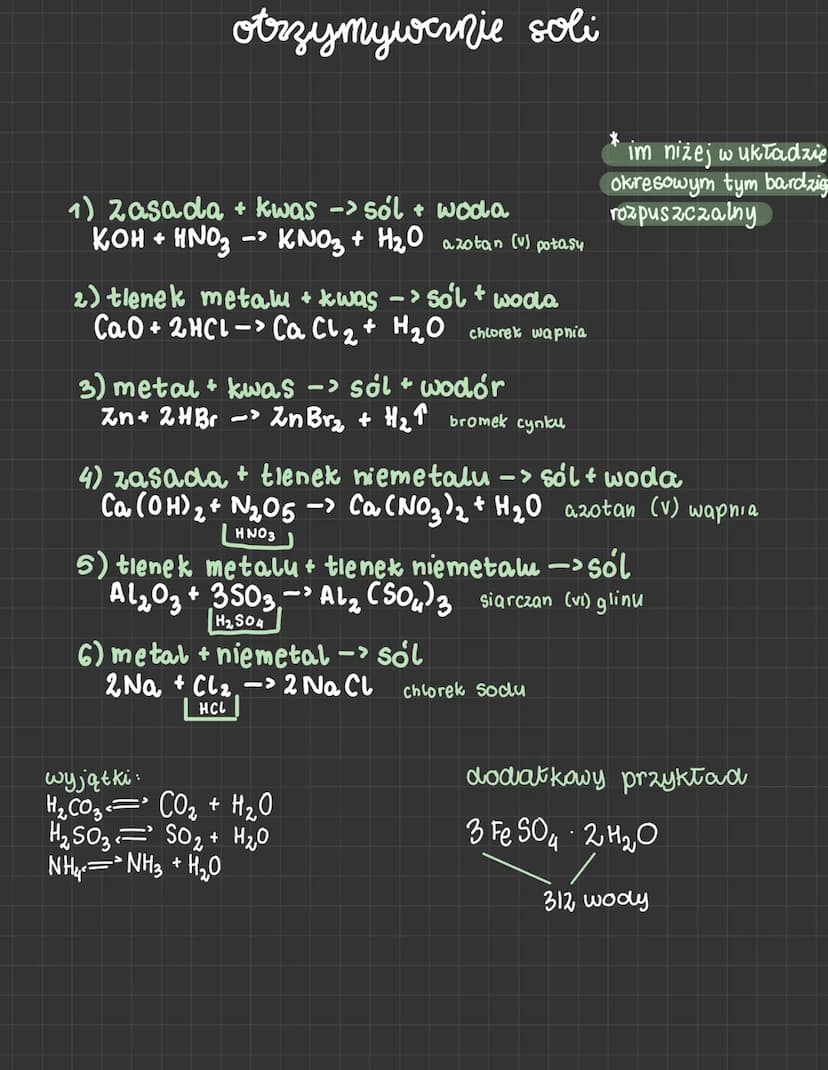 otrzymywanie soli
* im niżej w układzie
okresowym tym bardzie
rozpuszczalny
1) zasada + kwas -> sól + woda
KOH + HNO₃ -> KNO₃ + H₂O azotan (V) potasu
2) tlenek metalu + kwas -> sól + woda
CaO + 2HCl -> CaCl₂ + H₂O chlorek wapnia
3) metal + kwas -> sól + wodór
Zn + 2HBr -> ZnBr₂ + H₂↑ bromek cynku
4) zasada + tlenek niemetalu -> sól + woda
Ca(OH)₂ + N₂O₅ -> Ca(NO₃)₂ + H₂O azotan (V) wapnia
HNO₃
5) tlenek metalu + tlenek niemetalu -> sól
Al₂O₃ + 3SO₃ -> Al₂(SO₄)₃ siarczan (VI) glinu
H₂SO₄
6) metal + niemetal -> sól
2Na + Cl₂ -> 2NaCl chlorek sodu
HCl
wyjątki:
H₂CO₃ <=> CO₂ + H₂O
H₂SO₃ <=> SO₂ + H₂O
NH₄ <=> NH₃ + H₂O
dodatkowy przykład
3FeSO₄ · 2H₂O
312 wody